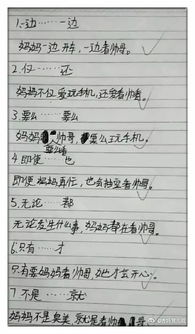 1.一边……一边
妈妈一边开车,一边看帅哥。
2.仅……还
妈妈不仅爱玩手机,还爱看帅哥。
3.要么……要么
妈妈要么看帅哥,要么玩手机。
4.即使……也
即使妈妈再忙,也会抽空看帅哥。
5.无论……都
无论发生什么事,妈妈都在看帅哥。
6.只有……才
只有要妈妈看帅哥,她才会开心。
7.不是……就
妈妈不是臭美就是看帅哥